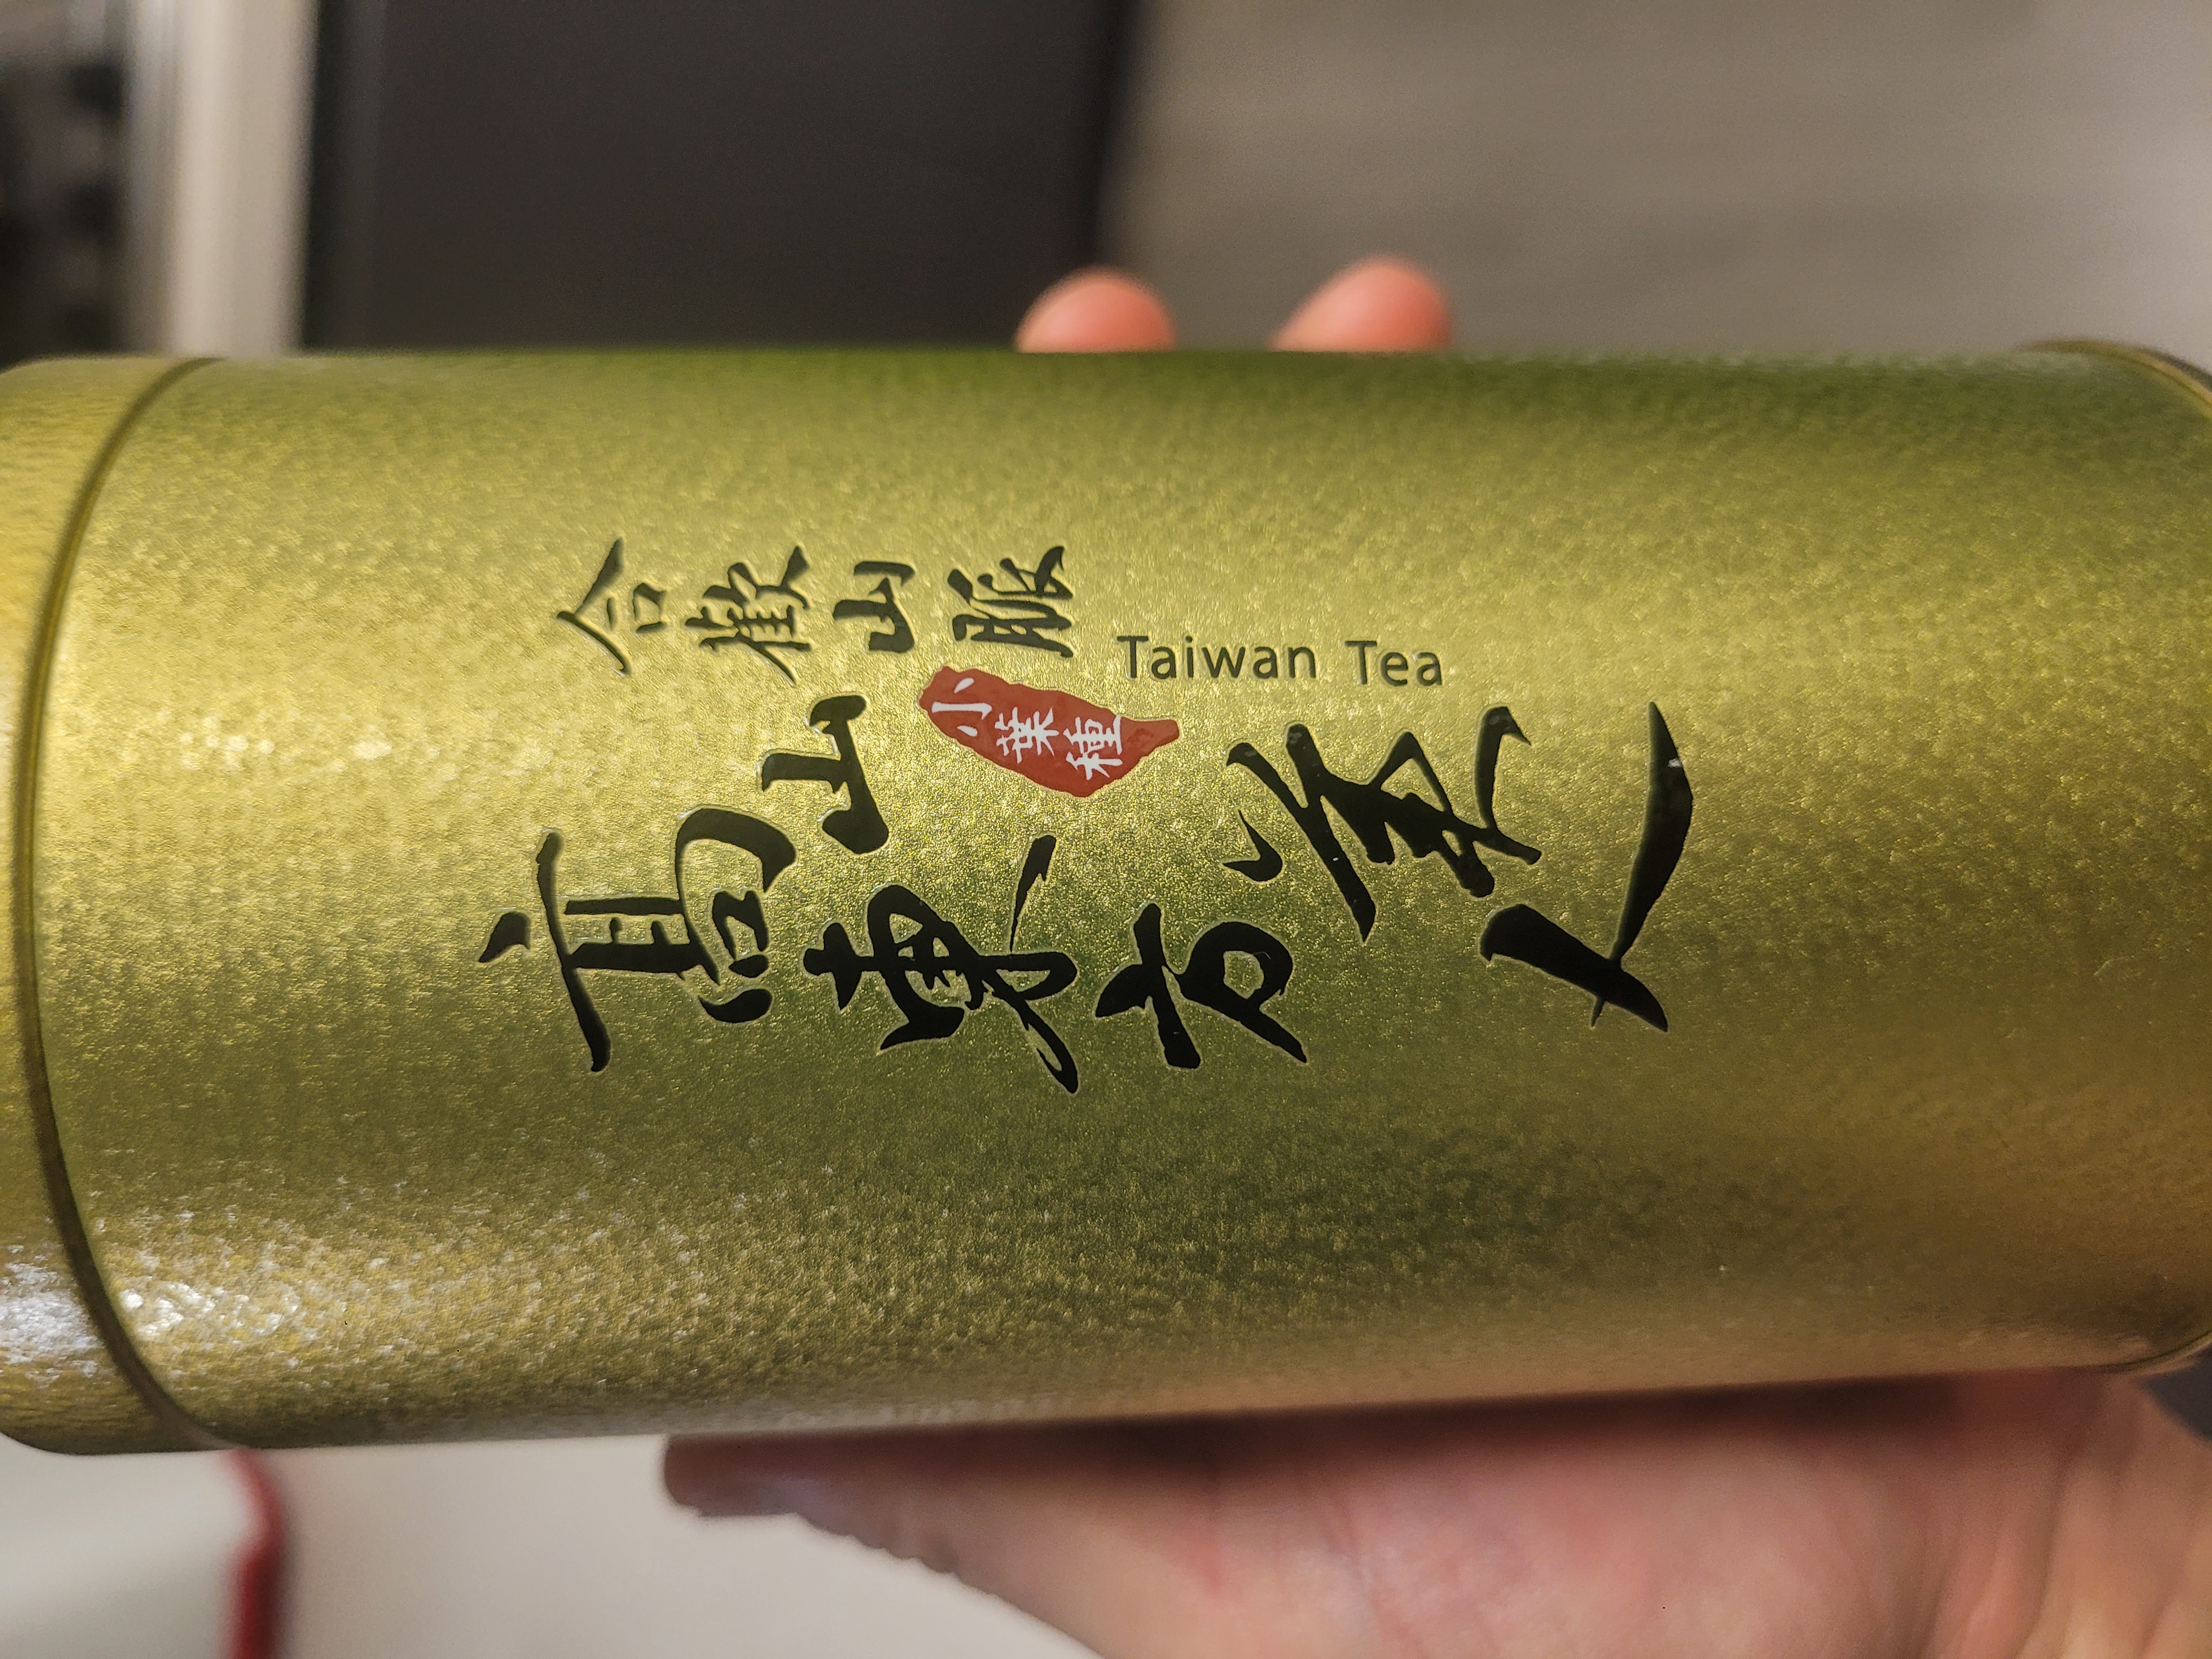 合歡山脈
Taiwan Tea
小葉種
高山東方美人